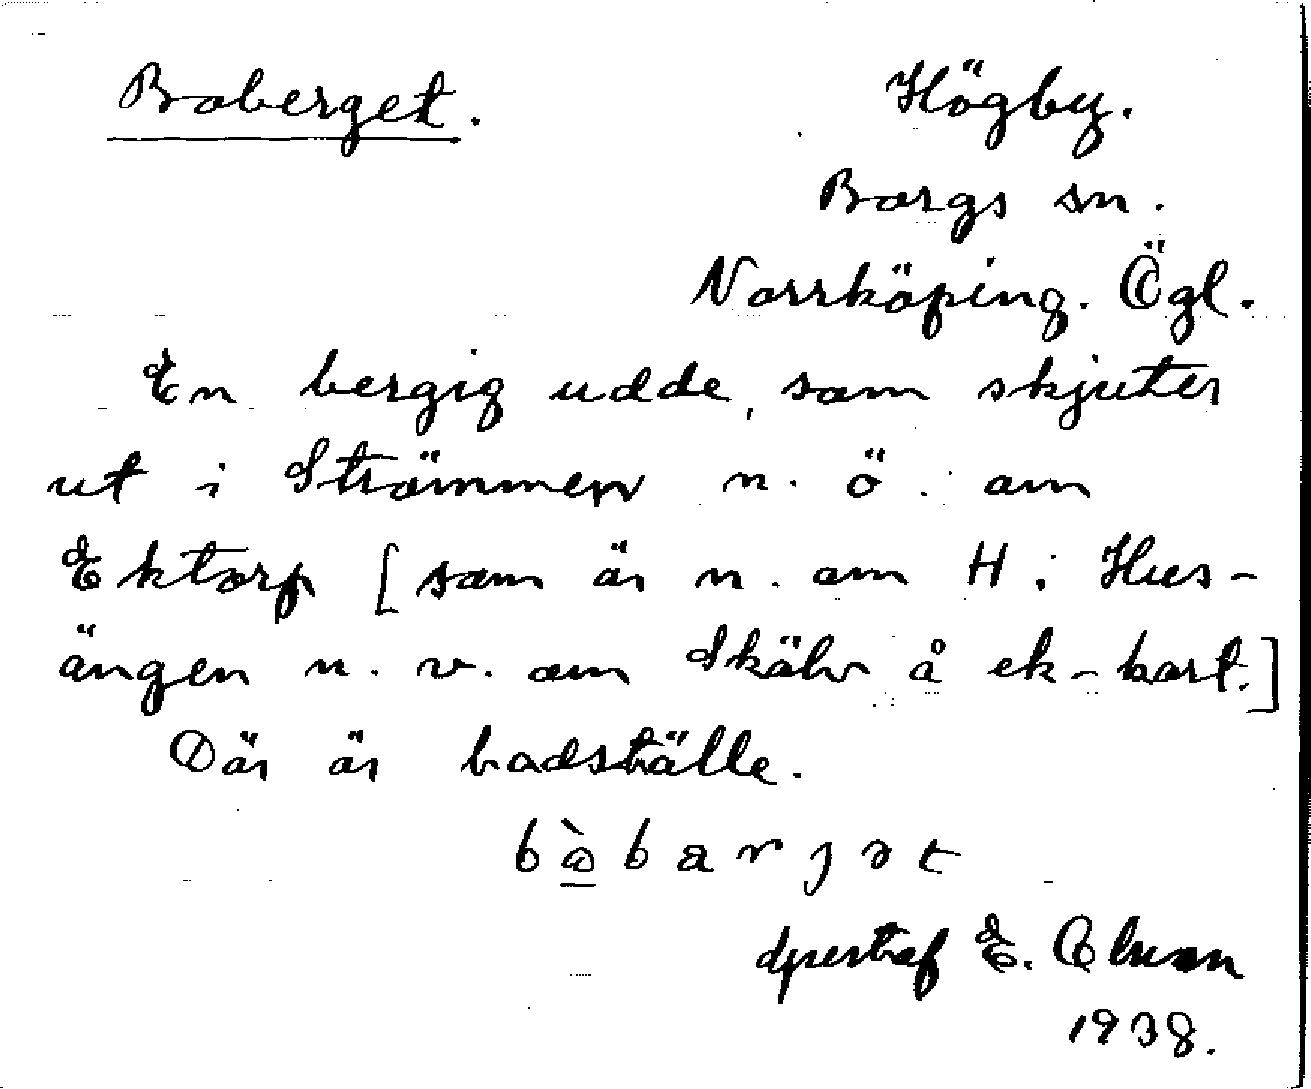 Boberget.
Högby.
Borgs sn.
Norrköping. Ögl.
En bergig udde, som skjuter
ut i Strömmen n. ö. om
Ektorp [som är n. om H. i Hus-
ängen n. v. om Skälv å ek-kart.]
Där är badställe.
bə̀barjət
Gustaf E. Olsson
1938.